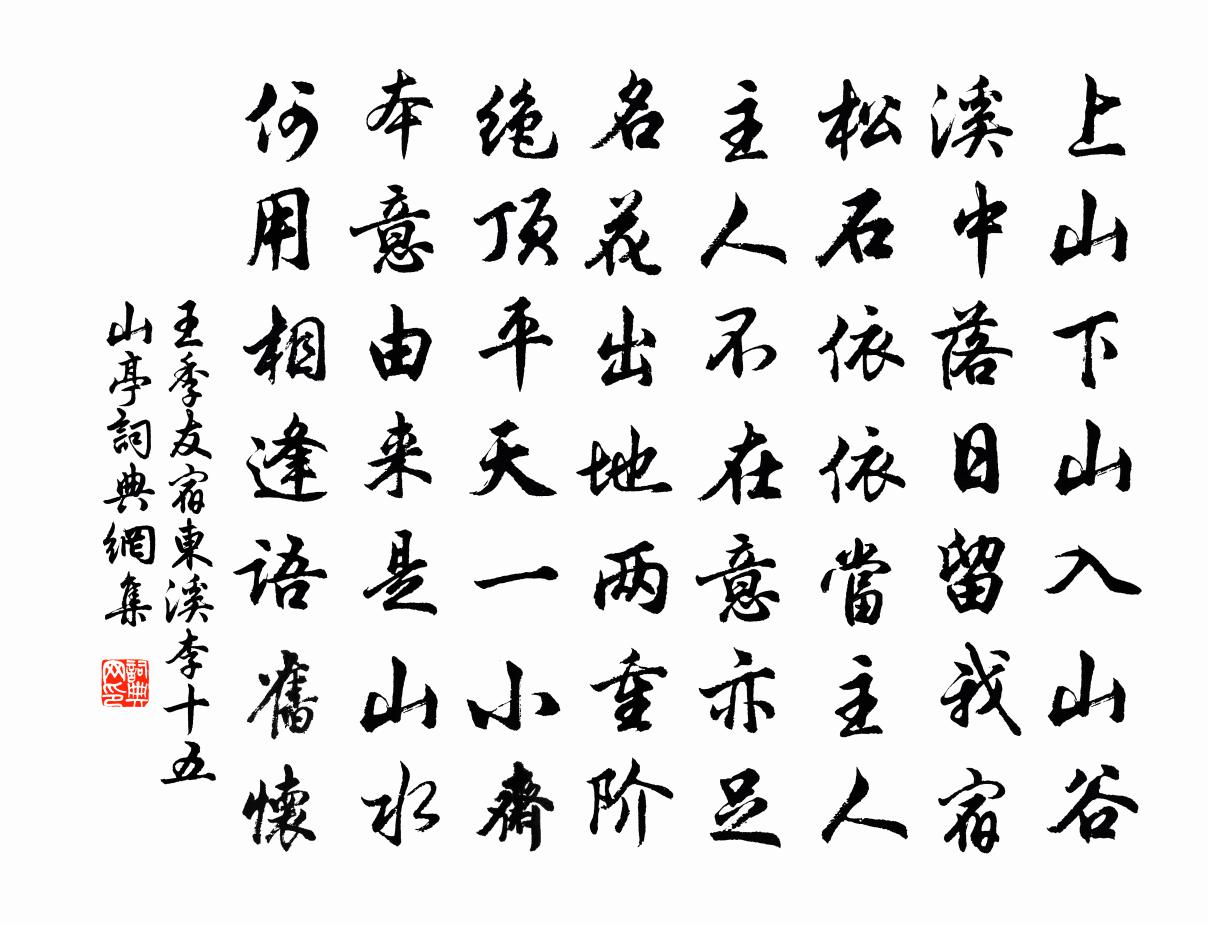 上山下山入山谷
溪中落日留我宿
松石依依當主人
主人不在意亦足
名花出地两重阶
绝顶平天一小齋
本意由来是山水
何用相逢語舊懷
王季友宿東溪李十五
山亭詞典網集
詞典网印